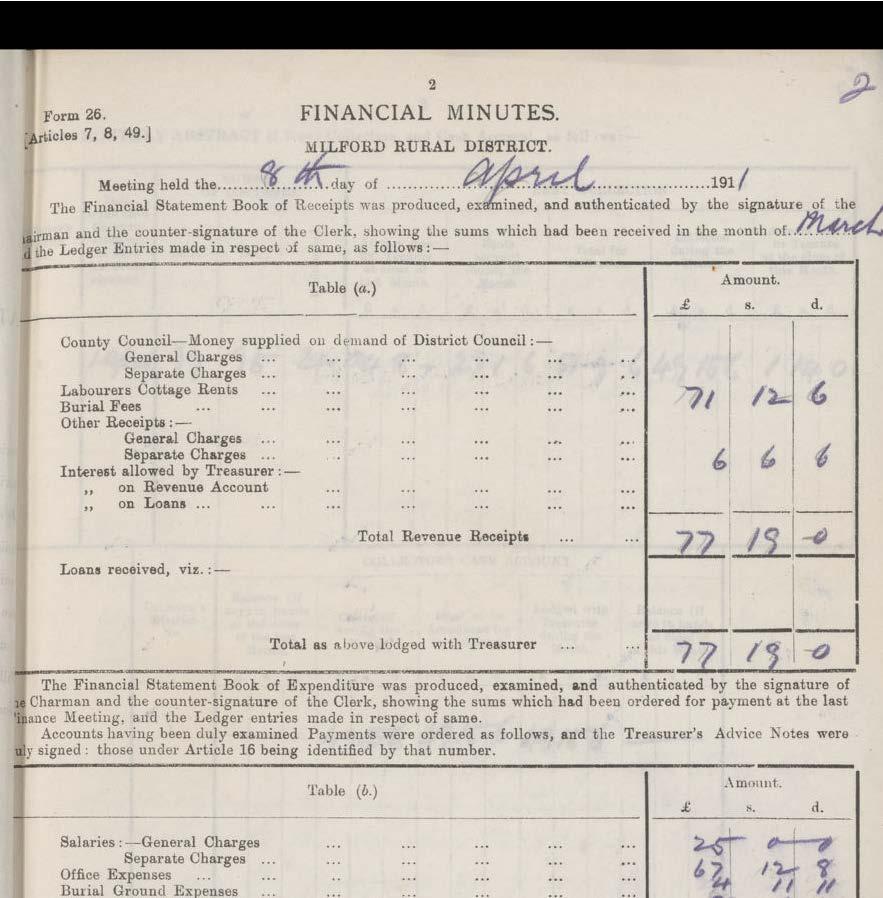 2
2
Form 26.
[Articles 7, 8, 49.]
FINANCIAL MINUTES.
MILFORD RURAL DISTRICT.
Meeting held the 8th day of April 1911
The Financial Statement Book of Receipts was produced, examined, and authenticated by the signature of the
airman and the counter-signature of the Clerk, showing the sums which had been received in the month of March
d the Ledger Entries made in respect of same, as follows:—
Table (a.)
Amount.
£ s. d.
County Council—Money supplied on demand of District Council:—
General Charges ... ... ... ... ... ...
Separate Charges ... ... ... ... ... ...
Labourers Cottage Rents ... ... ... ... ... 71 12 6
Burial Fees ... ... ... ... ... ... ...
Other Receipts:—
General Charges ... ... ... ... ... ...
Separate Charges ... ... ... ... ... ... 6 6 6
Interest allowed by Treasurer:—
,, on Revenue Account ... ... ... ... ...
,, on Loans ... ... ... ... ... ... ...
Total Revenue Receipts ... ... 77 19 0
Loans received, viz.:—
Total as above lodged with Treasurer ... ... 77 19 0
The Financial Statement Book of Expenditure was produced, examined, and authenticated by the signature of
e Charman and the counter-signature of the Clerk, showing the sums which had been ordered for payment at the last
inance Meeting, and the Ledger entries made in respect of same.
Accounts having been duly examined Payments were ordered as follows, and the Treasurer's Advice Notes were
uly signed: those under Article 16 being identified by that number.
Table (b.)
Amount.
£ s. d.
Salaries:—General Charges ... ... ... ... ... 25 0 0
Separate Charges ... ... ... ... ... ... 67 12 8
Office Expenses ... ... ... ... ... ... ... 4 11 11
Burial Ground Expenses ... ... ... ... ...